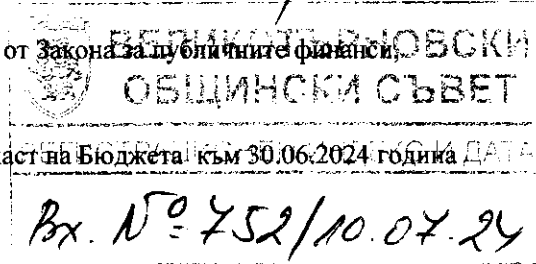 от Закона за публичните финанси,
ВЕЛИКОТЪРНОВСКИ
ОБЩИНСКИ СЪВЕТ
част на Бюджета към 30.06.2024 година
И ДАТА
Вх. № 752/10.07.24